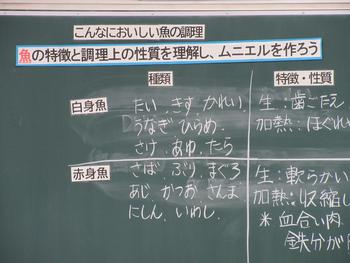 こんなにおいしい魚の調理
魚の特徴と調理上の性質を理解し、ムニエルを作ろう
種類
特徴・性質
白身魚
たい きす かれい
うなぎ ひらめ.
さけ、あゆ、たら
生：歯ごたえ
加熱：ほぐれ
赤身魚
さば、ぶり、まぐろ
あじ かつお さんま
にしん、いわし.
生：軟らかい
加熱：収縮し
※血合い肉
鉄分が